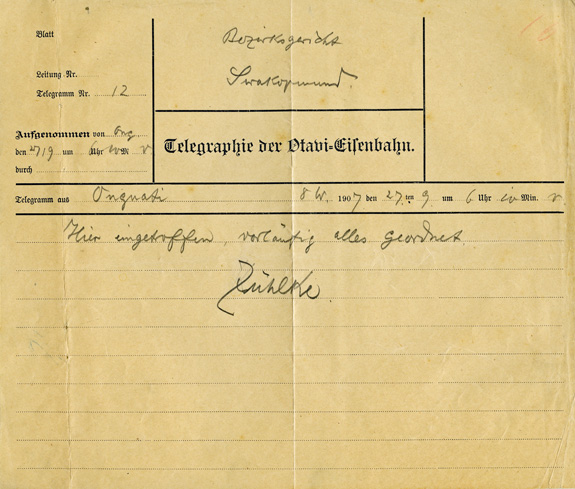 Blatt
Bezirksgericht
Leitung Nr.
Swakopmund.
Telegramm Nr. 12
Aufgenommen von Ong.
den 27/9 um 6 Uhr M v
durch
Telegraphie der Otavi-Eisenbahn.
Telegramm aus Onguati 8 W. 1907 den 27ten 9 um 6 Uhr Min. v
Hier eingetroffen, vorläufig alles geordnet
Zühlke.